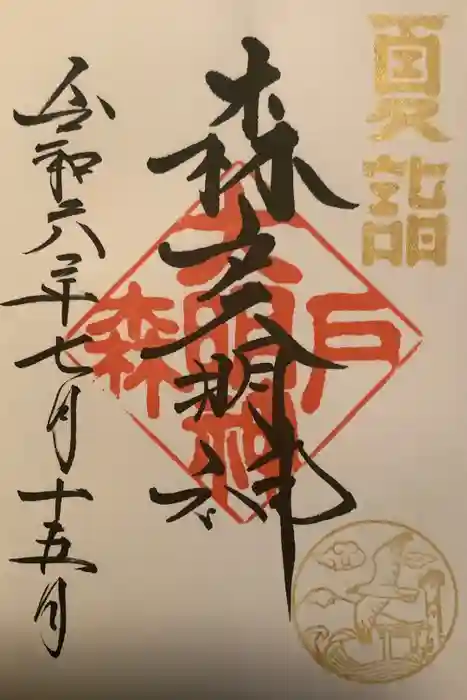 夏詣
森戸大明神
令和六年七月十五日
森戸
大明神